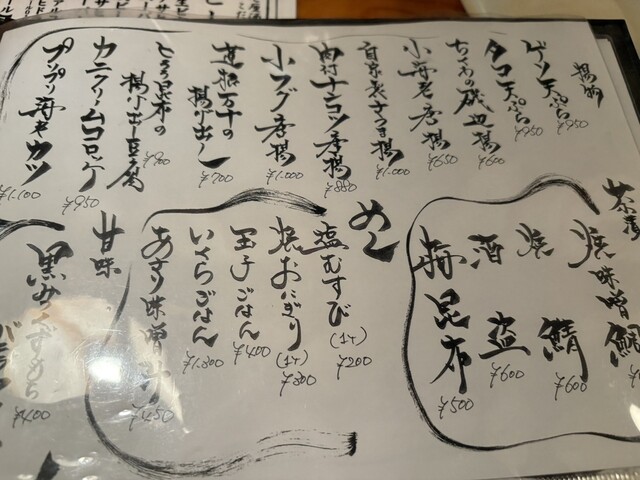 揚物
ゲソ天ぷら ¥950
タコ天ぷら ¥950
ちくわの磯辺揚 ¥600
小海老唐揚 ¥650
自家製さつま揚 ¥1.000
肉付ナンコツ唐揚 ¥880
小フグ唐揚 ¥1.000
揚げ出し ¥700
とろろ昆布の
揚げ出し豆腐 ¥900
カニクリームコロッケ ¥950
プリプリ海老カツ ¥1.100
茶漬
焼味噌鯛
焼鯖 ¥600
酒盗 ¥600
梅昆布 ¥500
めし
塩むすび (1ケ) ¥200
焼おにぎり (1ケ) ¥300
玉子ごはん ¥400
いくらごはん ¥1.300
あさり味噌汁 ¥450
甘味
黒みつくずもち ¥400